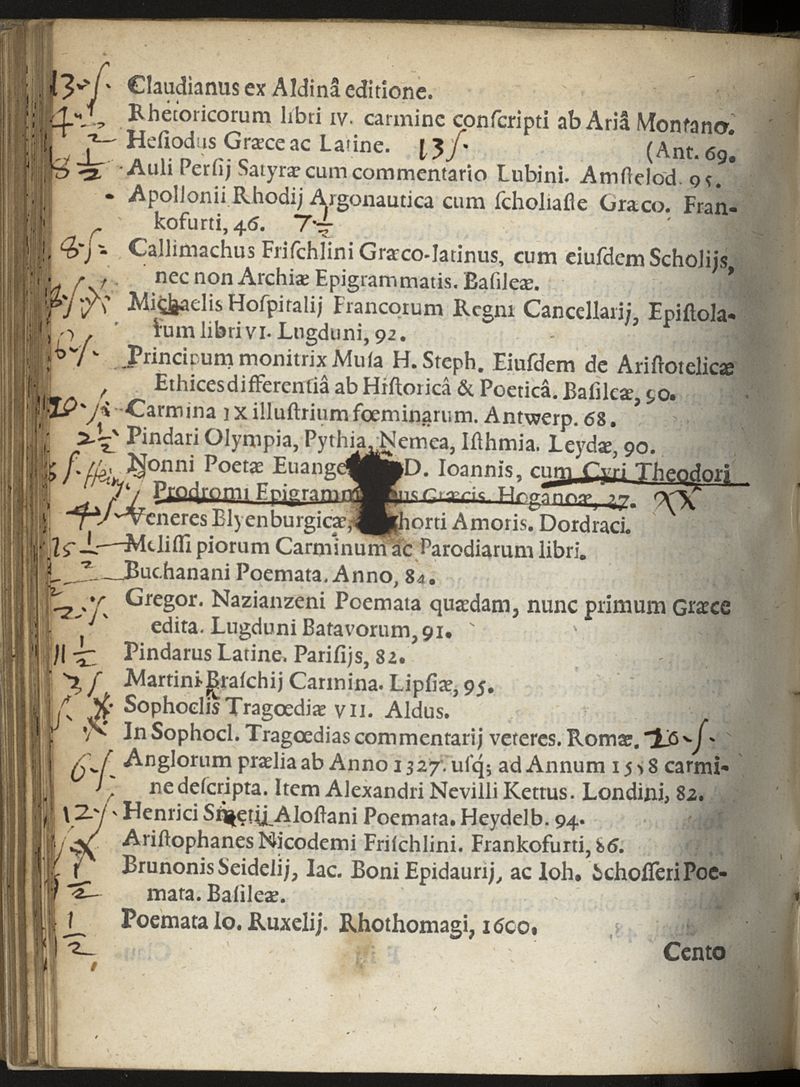 13 ſ· Claudianus ex Aldinâ editione.
4 Rhetoricorum libri IV. carmine conſcripti ab Ariâ Montano.
Heſiodus Græce ac Latine. 13 ſ· (Ant. 69.
8 ½ Auli Perſij Satyræ cum commentario Lubini. Amſtelod. 95.
Apollonii Rhodij Argonautica cum ſcholiaſte Græco. Fran-
kofurti, 46. 7-½
8 ſ- Callimachus Friſchlini Græco-latinus, cum eiuſdem Scholijs,
nec non Archiæ Epigrammatis. Baſileæ.
Michaelis Hoſpitalij Francorum Regni Cancellarij, Epiſtola-
rum libri VI. Lugduni, 92.
Principum monitrix Muſa H. Steph. Eiuſdem de Ariſtotelicæ
Ethices differentiâ ab Hiſtoricâ & Poeticâ. Baſileæ, 90.
Carmina IX illuſtrium fœminarum. Antwerp. 68.
2½ Pindari Olympia, Pythia, Nemea, Iſthmia. Leydæ, 90.
Nonni Poetæ Euange D. Ioannis, cum Cyri Theodori
Prodromi Epigramm Græcis. Hoganoæ, 27. XX
Veneres Blyenburgicæ, horti Amoris. Dordraci.
Meliſſi piorum Carminum ac Parodiarum libri.
Buchanani Poemata. Anno, 84.
Gregor. Nazianzeni Poemata quædam, nunc primum Græce
edita. Lugduni Batavorum, 91.
11 ½ Pindarus Latine. Pariſijs, 82.
3 ſ Martini Braſchij Carmina. Lipſiæ, 95.
Sophoclis Tragœdiæ VII. Aldus.
In Sophocl. Tragœdias commentarij veteres. Romæ. 26 ſ·
6 ſ. Anglorum prælia ab Anno 1327. uſq; ad Annum 1558 carmi-
ne deſcripta. Item Alexandri Nevilli Kettus. Londini, 82.
12 ſ· Henrici Smetij Aloſtani Poemata. Heydelb. 94.
Ariſtophanes Nicodemi Friſchlini. Frankofurti, 86.
Brunonis Seidelij, Iac. Boni Epidaurij, ac Ioh. Schoſſeri Poe-
½ mata. Baſileæ.
½ Poemata Io. Ruxelij. Rhothomagi, 1600.
Cento